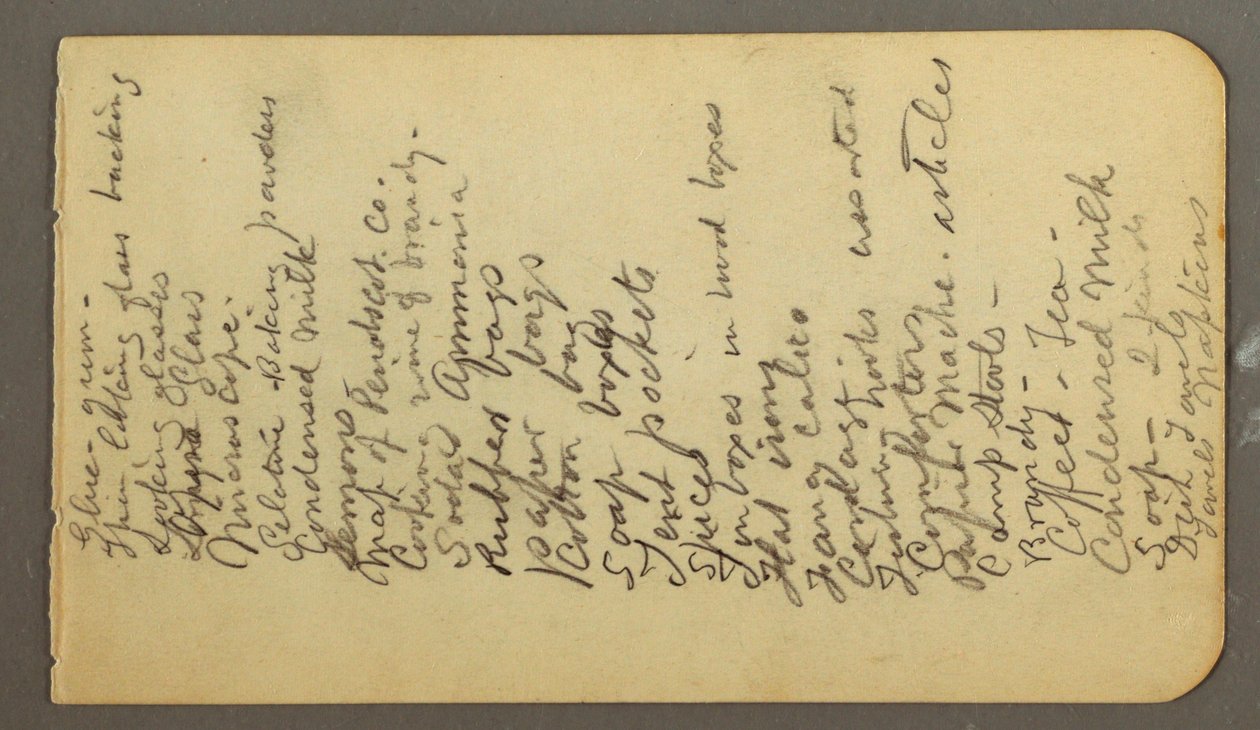 Glue - gum -
Thin lifting glass backing
Looking glasses
Opera Glass
Microscope.
Gelatine - Baking powders
Condensed Milk
Lemons
Map of Penobscot Co.
Cooking wine & brandy -
Sodas Ammonia
Rubber bags
Paper bags
Cotton bag
Soap boxes
Tent pockets
Spices
in boxes in wood boxes
Flat irons
Fancy calico
Card
Fishing hooks assorted
Comforters
Papier Mache. articles
Camp Stools -
Brandy -
Coffee - Tea -
Condensed Milk
Soap - 2 kinds
Dish Towels
Towels Napkins